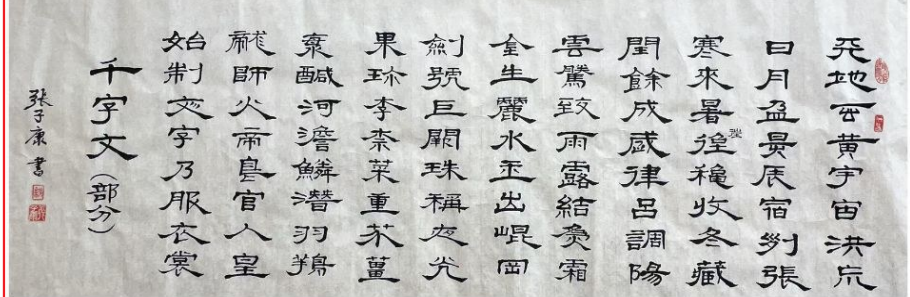 天地玄黄宇宙洪荒
日月盈昃辰宿列張
寒來暑徃穐收冬藏
閏餘成歲律呂調陽
雲騰致雨露結為霜
金生麗水玉出崐岡
劍號巨闕珠稱夜光
果珎李柰菜重芥薑
海鹹河澹鱗潛羽翔
龍師火帝鳥官人皇
始制文字乃服衣裳
千字文（部分）
張子康書